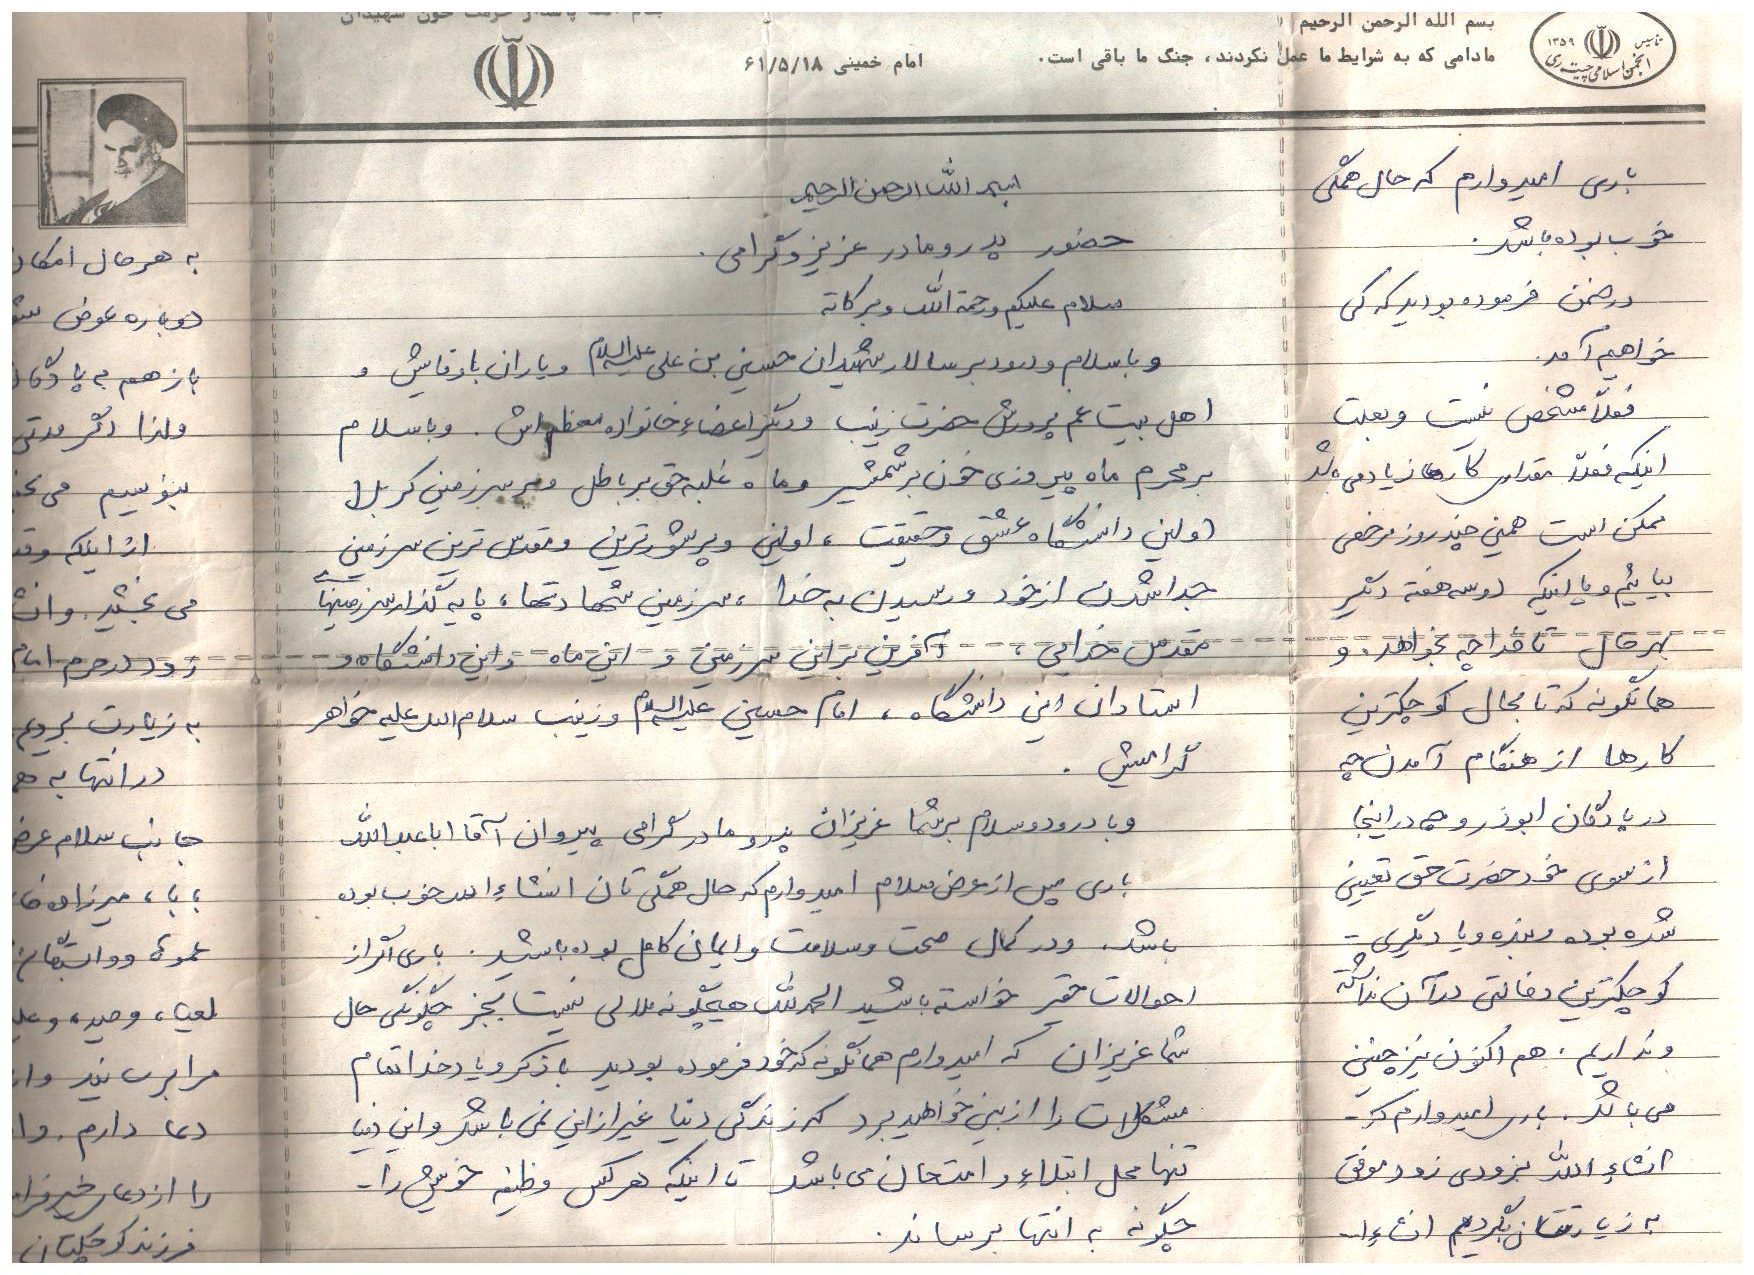 بسم الله الرحمن الرحیم
مادامی که به شرایط ما عمل نکردند، جنگ ما باقی است.
امام خمینی ۶۱/۵/۱۸
تاسیس ۱۳۵۹
انجمن اسلامی چیت ری
بسم الله الرحمن الرحیم
حضور پدر و مادر عزیز و گرامی.
سلام علیکم و رحمة الله و برکاته
و با سلام و درود بر سالار شهیدان حسین بن علی علیه السلام و یاران باوفایش و
اهل بیت غم پرورش حضرت زینب و دیگر اعضاء خانواده معظم اش. و با سلام
بر محرم ماه پیروزی خون بر شمشیر و ماه غلبه حق بر باطل و بر سرزمین کربلا
اولین دانشگاه عشق و حقیقت، اولین و پرشورترین و مقدس ترین سرزمین
جدا شدن از خود و رسیدن به خدا، سرزمین شهادتها، پایه گذار سرزمینهای
مقدس خدایی، آفرین بر این سرزمین و این ماه و این دانشگاه و
استادان این دانشگاه، امام حسین علیه السلام و زینب سلام الله علیه خواهر
گرامیش.
و با درود و سلام بر شما عزیزان پدر و مادر گرامی پیروان آقا ابا عبدالله
باری پس از عرض سلام امیدوارم که حال همگی تان انشاء الله خوب بوده
باشد. و در کمال صحت و سلامت و ایمان کامل بوده باشید. باری اگر از
احوالات حقیر خواسته باشید الحمدلله هیچگونه ملالی نیست بجز چگونگی حال
شما عزیزان که امیدوارم همانگونه که خود فرموده بودید با ذکر و یاد خدا تمام
مشکلات را از بین خواهید برد که زندگی دنیا غیر از این نمی باشد و این دنیا
تنها محل ابتلاء و امتحان می باشد تا اینکه هر کس وظیفه خویش را-
چگونه به انتها برساند.
باری امیدوارم که حال همگی
خوب بوده باشد.
در ضمن فرموده بودید که کی
خواهیم آمد.
فعلاً مشخص نیست و بعلت
اینکه فعلاً مقدار کارها زیاد می باشد
ممکن است همین چند روز مرخصی
بیائیم و یا اینکه دو سه هفته دیگر
بهر حال تا خدا چه بخواهد. و
همانگونه که تا بحال کوچکترین
کارها از هنگام آمدن چه
در پادگان ابوذر و چه در اینجا
از سوی خود حضرت حق تعیین
شده بوده و بنده و یا دیگری-
کوچکترین دخالتی در آن نداشته
و نداریم. هم اکنون نیز چنین
می باشد. باری امیدوارم که-
انشاء الله بزودی زود موفق
به زیارتتان بگردیم انشاء ا..
به هر حال امکان
دوباره عوض
باز هم به پادگان
ولذا اگر مدتی
بنویسیم می
از اینکه
می بخشید. و
زود در حرم امام
به زیارت برویم
در انتها به
جانب سلام عرض
بابا، میرزاده
عموها و وابستگان
لعیا، وحید، و
مرا برسانید و
دعا دارم. و
را از دعای خیر
فرزند کوچکتان